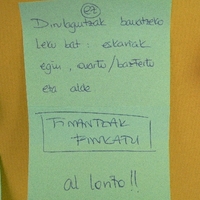 27
Dirulaguntzak bawatzeko
leku bat: eskariak
egin, onartu/baztertu
eta alde.
FINANTZAK
FINKATU
al loro!!